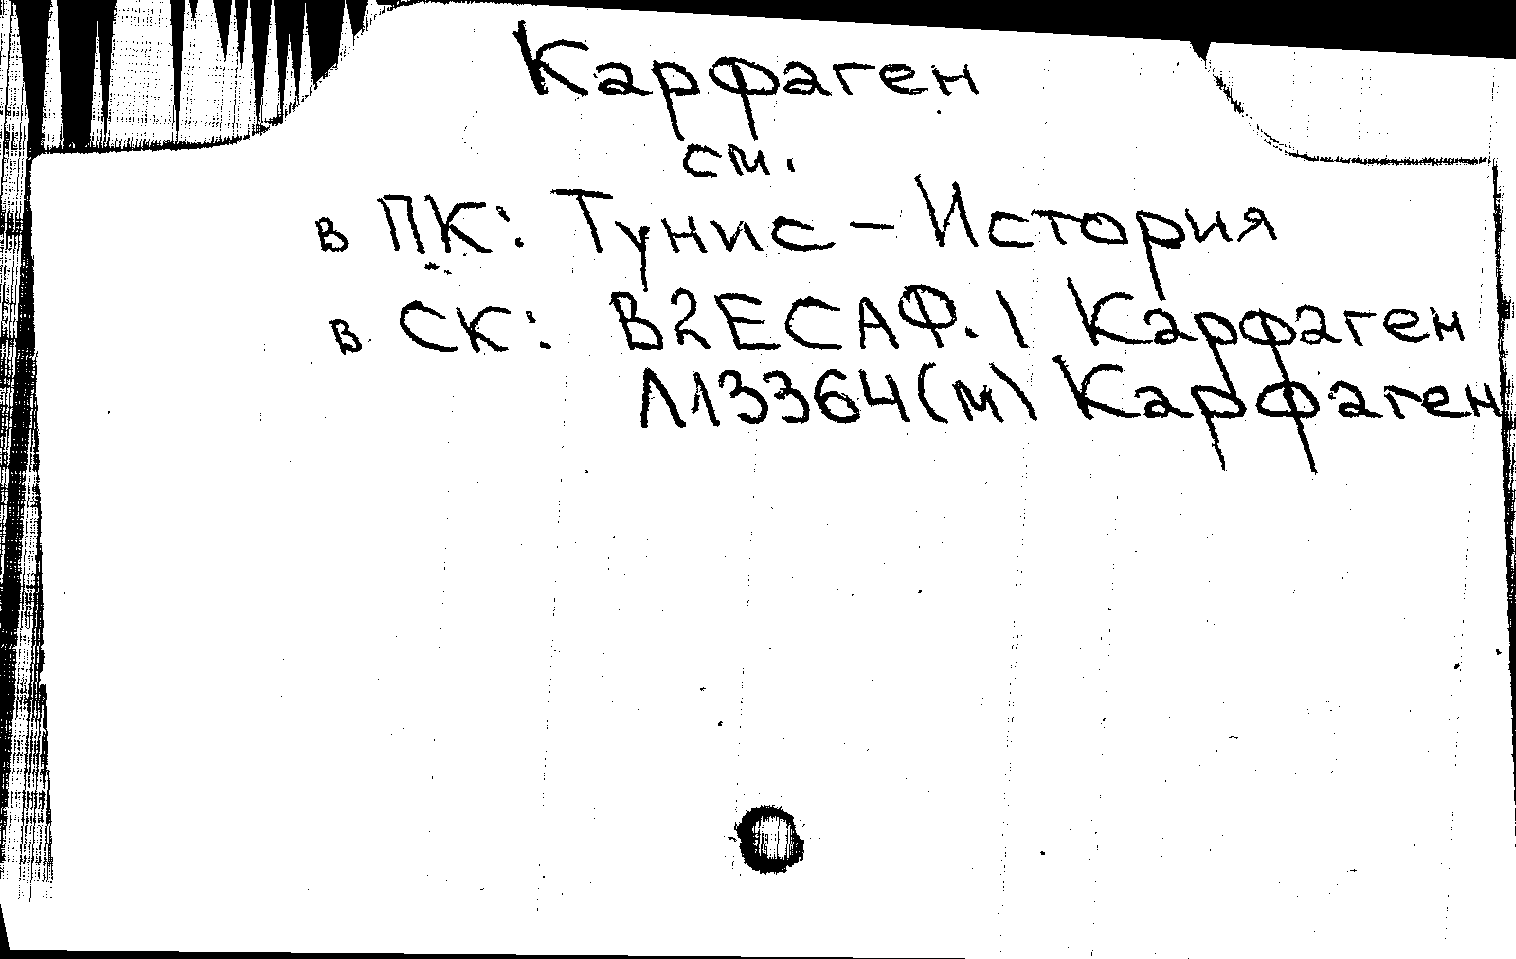 Карфаген
см.
в ПК: Тунис - История
в СК: В2ЕСАФ.1 Карфаген
Л13364(м) Карфаген